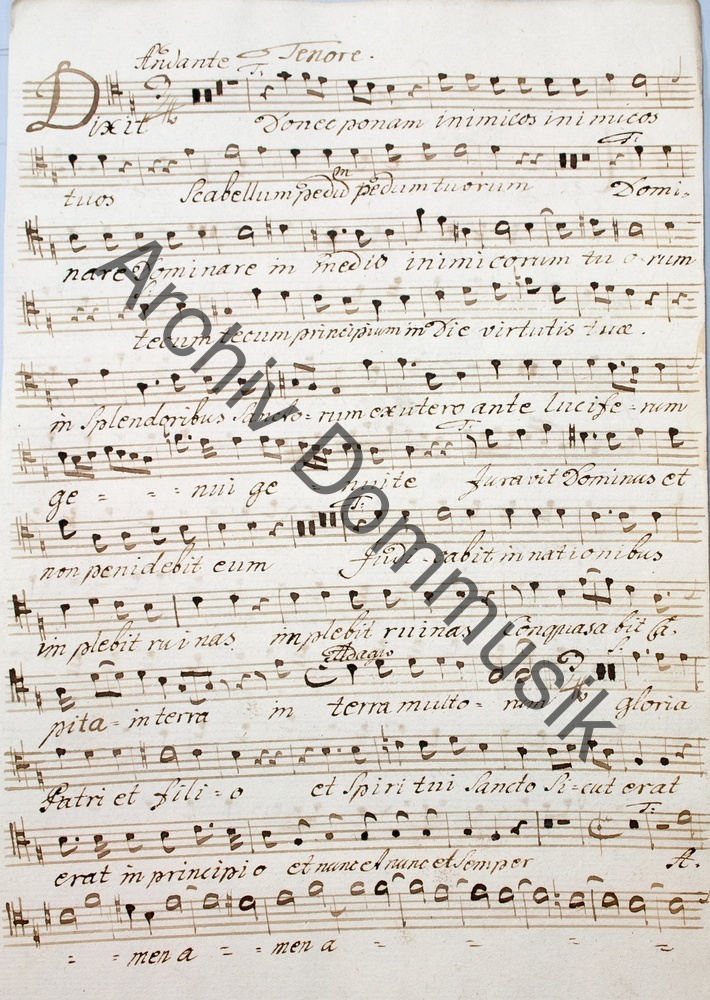 Andante Tenore.
T:
Dixit Donec ponam inimicos inimicos
tuos Scabellum pedum pedum tuorum Domi-
T:
nare Dominare in medio inimicorum tu o rum
tecum tecum principium in Die virtutis tuæ.
in Splendoribus Sancto-rum ex utero ante lucife-rum
T:
ge = = = nui ge nuite Juravit Dominus et
T:
non penidebit eum Judi-cabit in nationibus
implebit ruinas implebit ruinas Conquasabit Ca,
Addagio
pita-in terra in terra multo-rum gloria
S:
Patri et fili-o et Spiri tui Sancto Si=cut erat
T:
erat in principio et nunc et nunc et Semper A.
= = men a = = men a = = = =
Archiv Dommusik